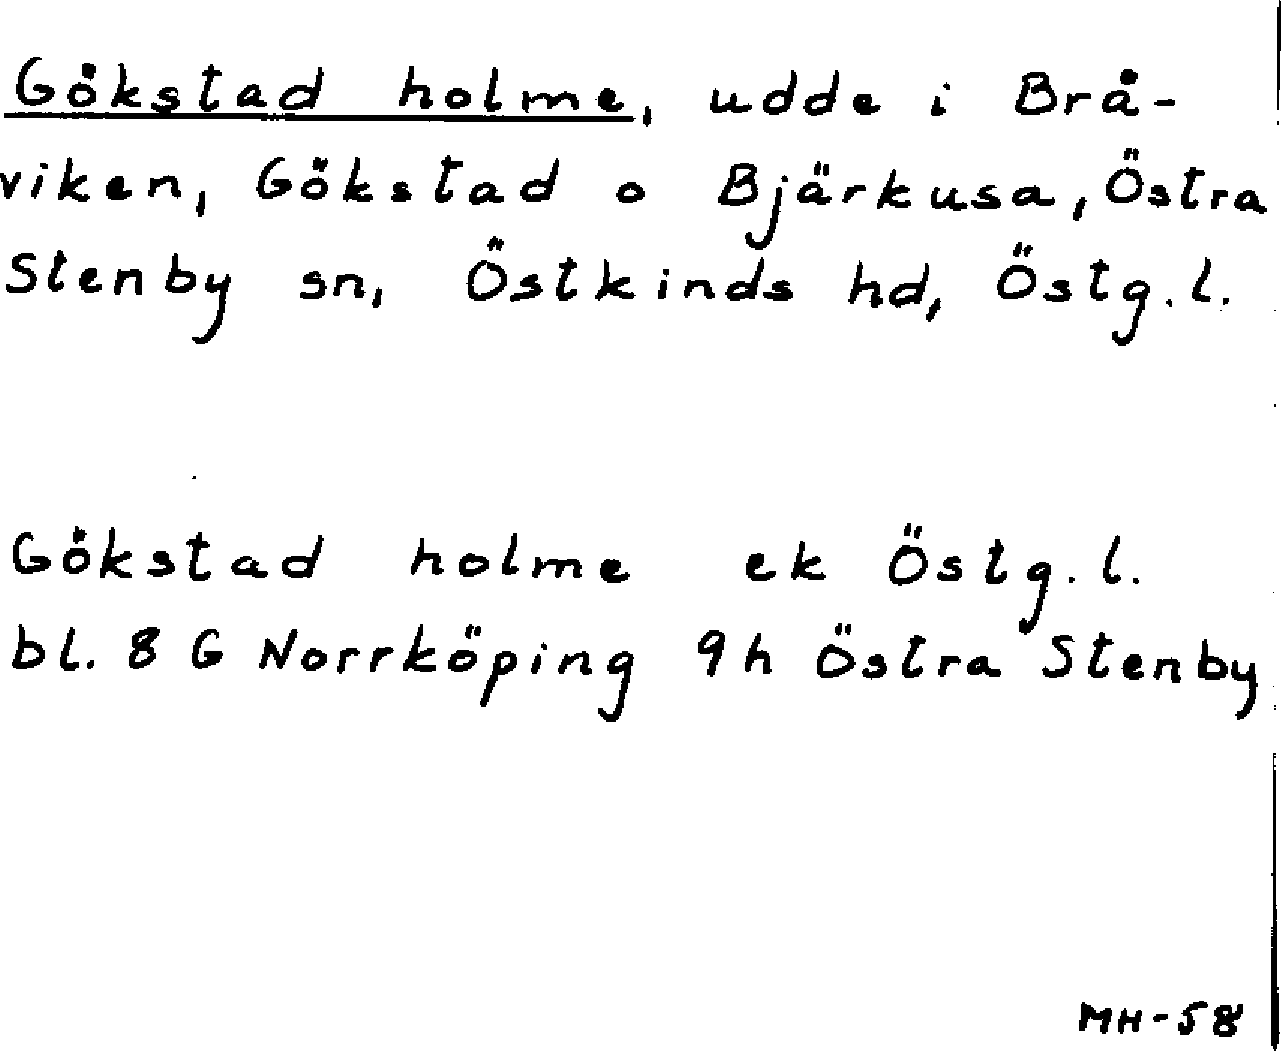 Gökstad holme, udde i Brå-
viken, Gökstad o Bjärkusa, Östra
Stenby sn, Östkinds hd, Östg.l.
Gökstad holme ek Östg.l.
bl. 8 G Norrköping 9h Östra Stenby
MH-58